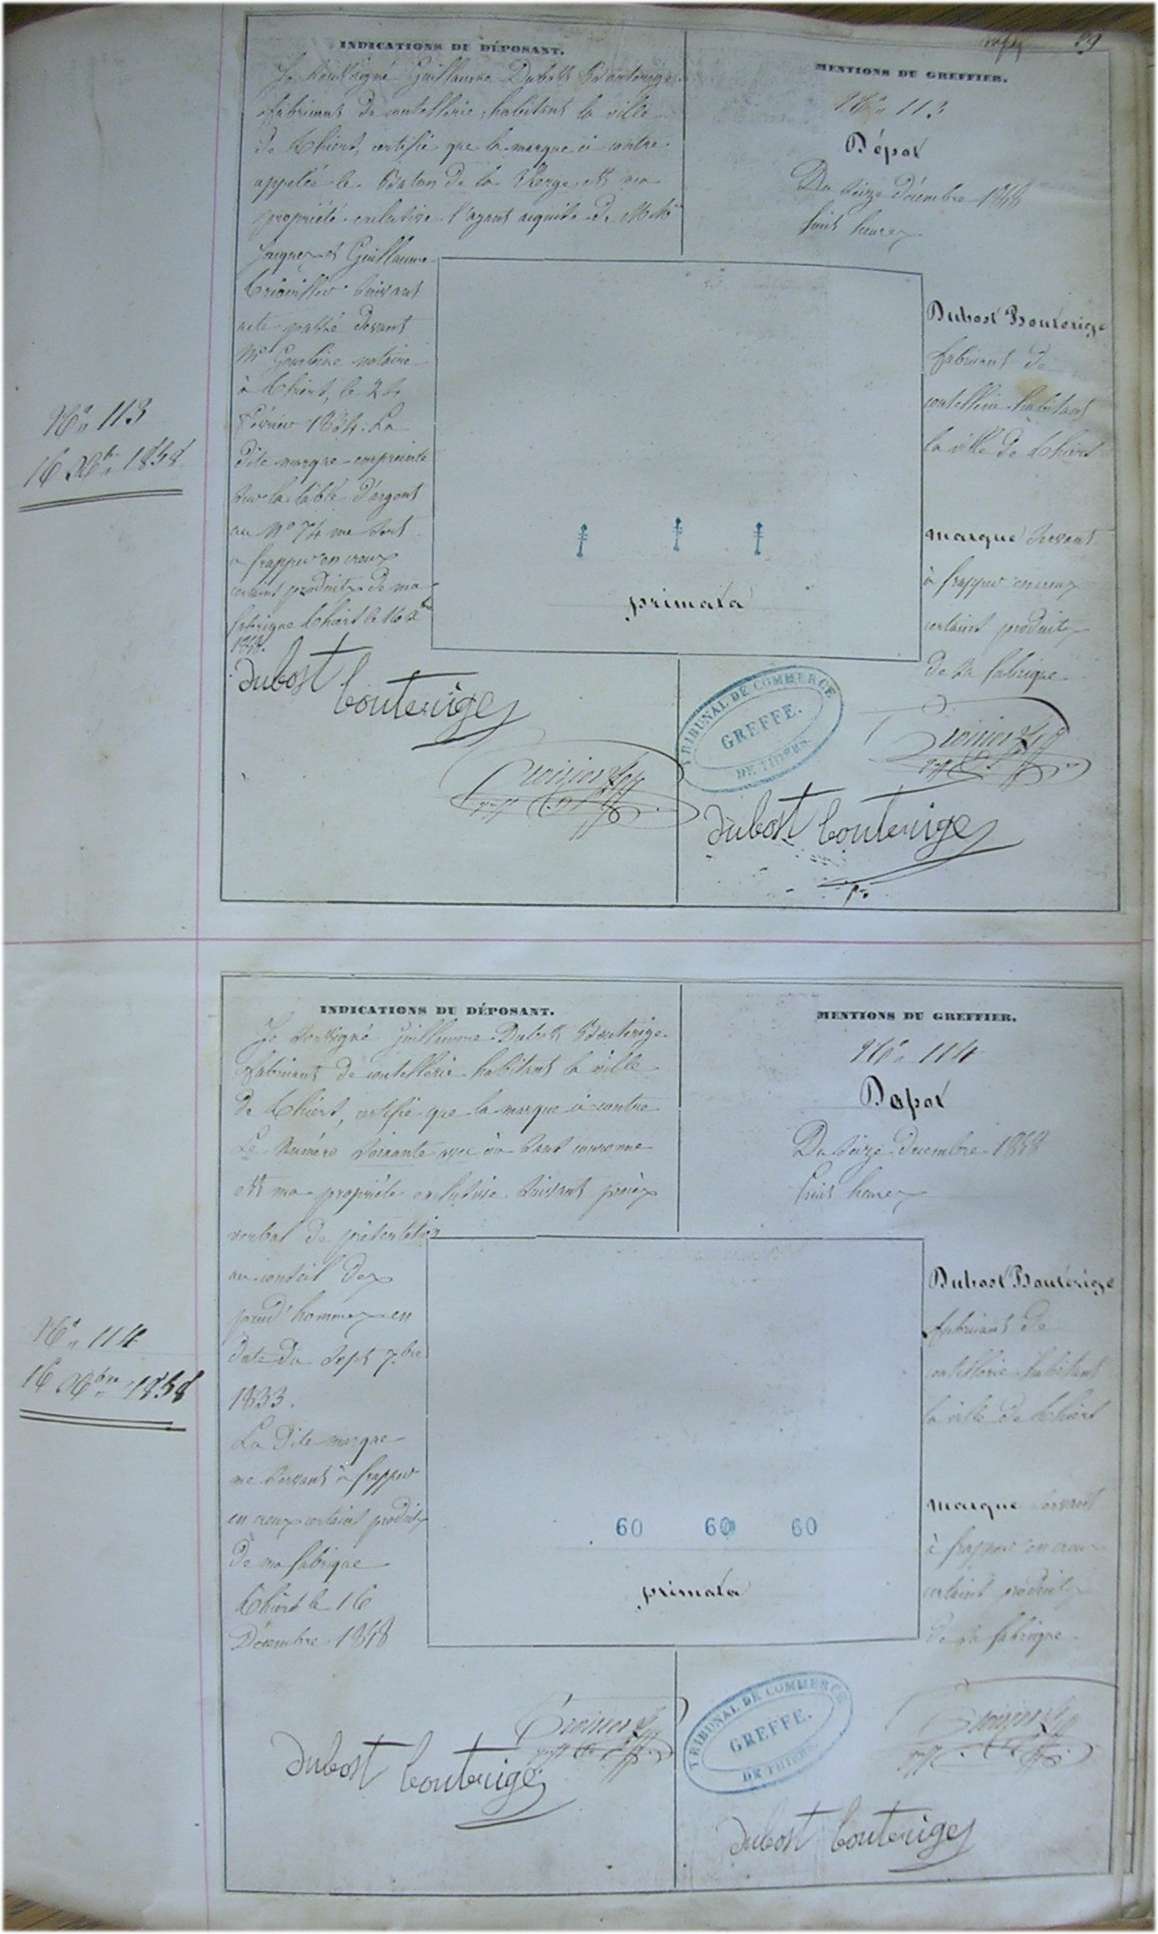 59
INDICATIONS DU DÉPOSANT.
Je soussigné Guillaume Dubost Bouterige
fabricant de coutellerie habitant la ville
de Thiers, certifie que la marque ci contre
appelée le Baton de la Vierge est ma
propriété exclusive l'ayant acquise de MM
Jacques et Guillaume
suivant
acte passé devant
Me notaire
à Thiers, le 24
Février 1834. La
dite marque empreinte
sur la table d'argent
au No 74 me sert
à frapper en creux
certains produits de ma
fabrique Thiers le 16 Xbre
1858.
dubost bouterige
MENTIONS DU GREFFIER.
No 113
Dépot
Du seize décembre 1858
huit heures
Dubost Bouterige
fabricant de
coutellerie habitant
la ville de Thiers
marque servant
à frapper en creux
certains produits
de sa fabrique
primata
TRIBUNAL DE COMMERCE
GREFFE.
DE THIERS.
dubost bouterige
No 113
16 Xbre 1858
INDICATIONS DU DÉPOSANT.
Je soussigné Guillaume Dubost Bouterige
fabricant de coutellerie habitant la ville
de Thiers, certifie que la marque ci contre
Le numéro soixante avec ou sans couronne
est ma propriété exclusive suivant procès
verbal de présentation
au conseil des
prud'hommes en
date du sept 7bre
1833.
La dite marque
me servant à frapper
en creux certains produits
de ma fabrique
Thiers le 16
Décembre 1858
dubost bouterige
MENTIONS DU GREFFIER.
No 114
Dépot
Du seize decembre 1858
huit heures
Dubost Bouterige
fabricant de
coutellerie habitant
la ville de Thiers
marque servant
à frapper en creux
certains produits
de sa fabrique
60 60 60
primata
TRIBUNAL DE COMMERCE
GREFFE.
DE THIERS.
dubost bouterige
No 114
16 Xbre 1858